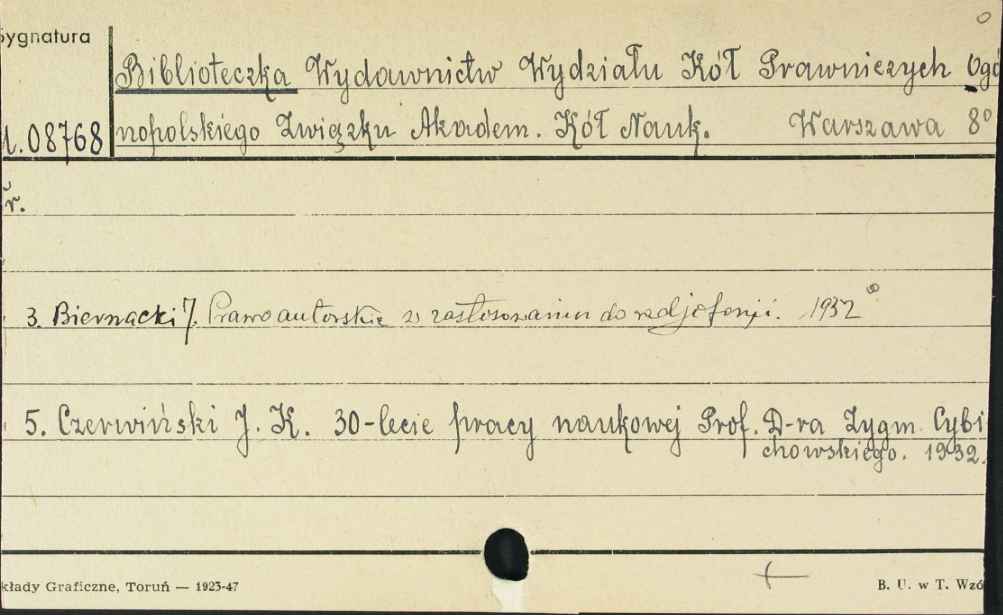 Sygnatura
Biblioteczka Wydawnictw Wydziału Kół Prawniczych Ogó
nopolskiego Związku Akadem. Kół Nauk. Warszawa 8°
1.08768
r.
3. Biernacki J. Prawo autorskie w zastosowaniu do radjofonji. 1932
5. Czerwiński J. K. 30-lecie pracy naukowej Prof. D-ra Zygm. Cybi
chowskiego. 1932.
kłady Graficzne, Toruń — 1923-47
B. U. w T. Wzó